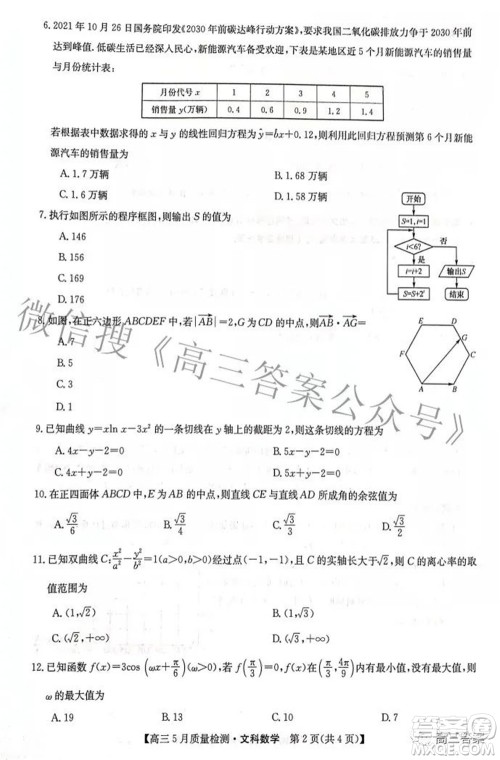 6. 2021 年 10 月 26 日国务院印发《2030 年前碳达峰行动方案》,要求我国二氧化碳排放力争于 2030 年前
达到峰值. 低碳生活已经深入民心,新能源汽车备受欢迎,下表是某地区近 5 个月新能源汽车的销售量
与月份的统计表:
月份代号 x 1 2 3 4 5
销售量 y(万辆) 0.4 0.6 1 1.2 1.4
若根据表中数据求得的 x 与 y 的线性回归方程为 ŷ=b̂x+0.12,则利用此回归方程预测第 6 个月新能
源汽车的销售量为
A. 1.7 万辆 B. 1.68 万辆
C. 1.6 万辆 D. 1.58 万辆
7. 执行如图所示的程序框图,则输出 S 的值为
A. 146
B. 162
C. 169
D. 176
开始
S=1,i=1
i<6?
否
是
i=i+2
输出S
S=S+2ⁱ
结束
8. 如图,在正六边形 ABCDEF 中,若|AB|=2,G 为 CD 的中点,则AB·AG=
A. 7
B. 5
C. 3
D. 1
E D
G
F C
A B
9. 已知曲线 y=xln x-3x² 的一条切线在 y 轴上的截距为 2,则这条切线的方程为
A. 4x-y-2=0 B. 5x-y-2=0
C. 4x+y-2=0 D. 5x+y-2=0
10. 在正四面体 ABCD 中,E 为 AB 的中点,则直线 CE 与直线 DE 所成角的余弦值为
A. √3/6 B. √3/3 C. 1/6 D. 1/3
11. 已知双曲线 C:x²/a²-y²/b²=1(a>0,b>0)经过点(-1,-1),且 C 的实轴长大于√2,则 C 的离心率的取
值范围为
A. (1,√2) B. (1,√3)
C. (√2,+∞) D. (√3,+∞)
12. 已知函数 f(x)=3cos(ωx+π/6)(ω>0),若 f(π/3)=0,f(x)在(π/3,4π/9)内无最大值,但有最小值,则
ω的最大值为
A. 19 B. 13 C. 10 D. 7
【高三 5 月质量检测·文科数学 第 2 页(共 4 页)】
微信搜《高三答案公众号》
高三答案